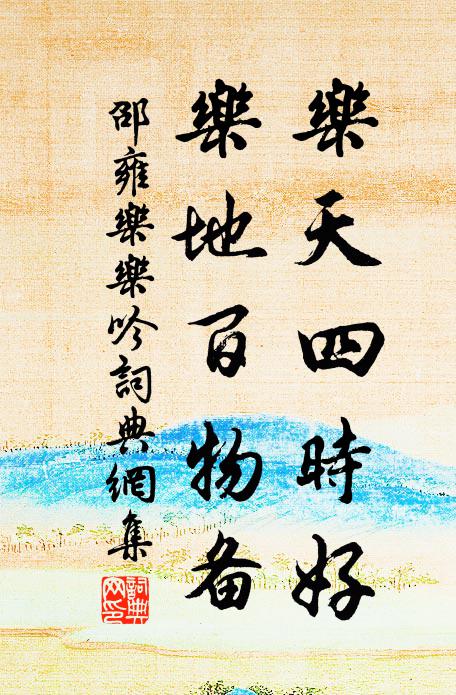 樂天四時好
樂地百物备
邵雍樂樂吟詞典網集